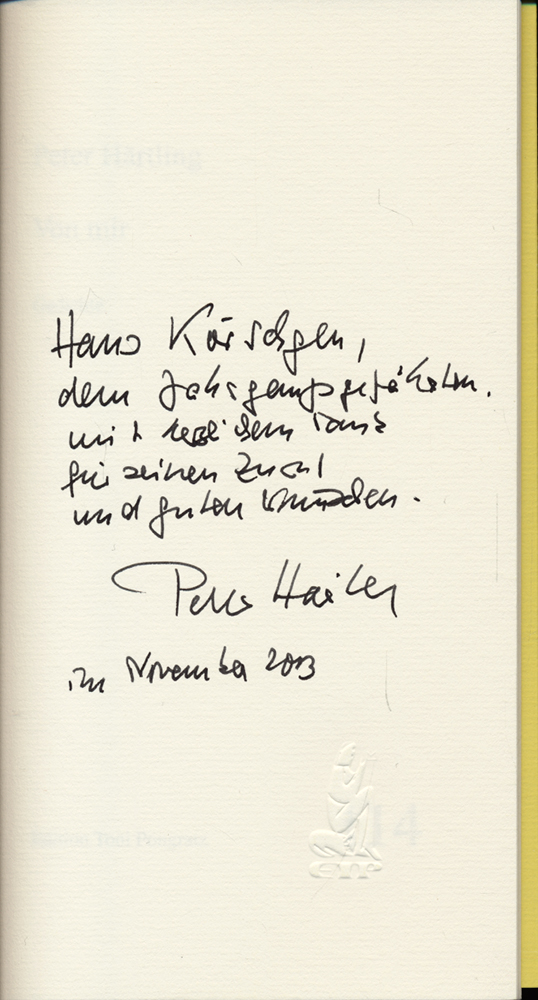 Peter Härtling
Von mir
Hans Körschgen,
dem Jahrgangsgefährten.
mit herzlichem Dank
für seinen
und guten Wünschen.
Peter Härtling
im November 2013
14